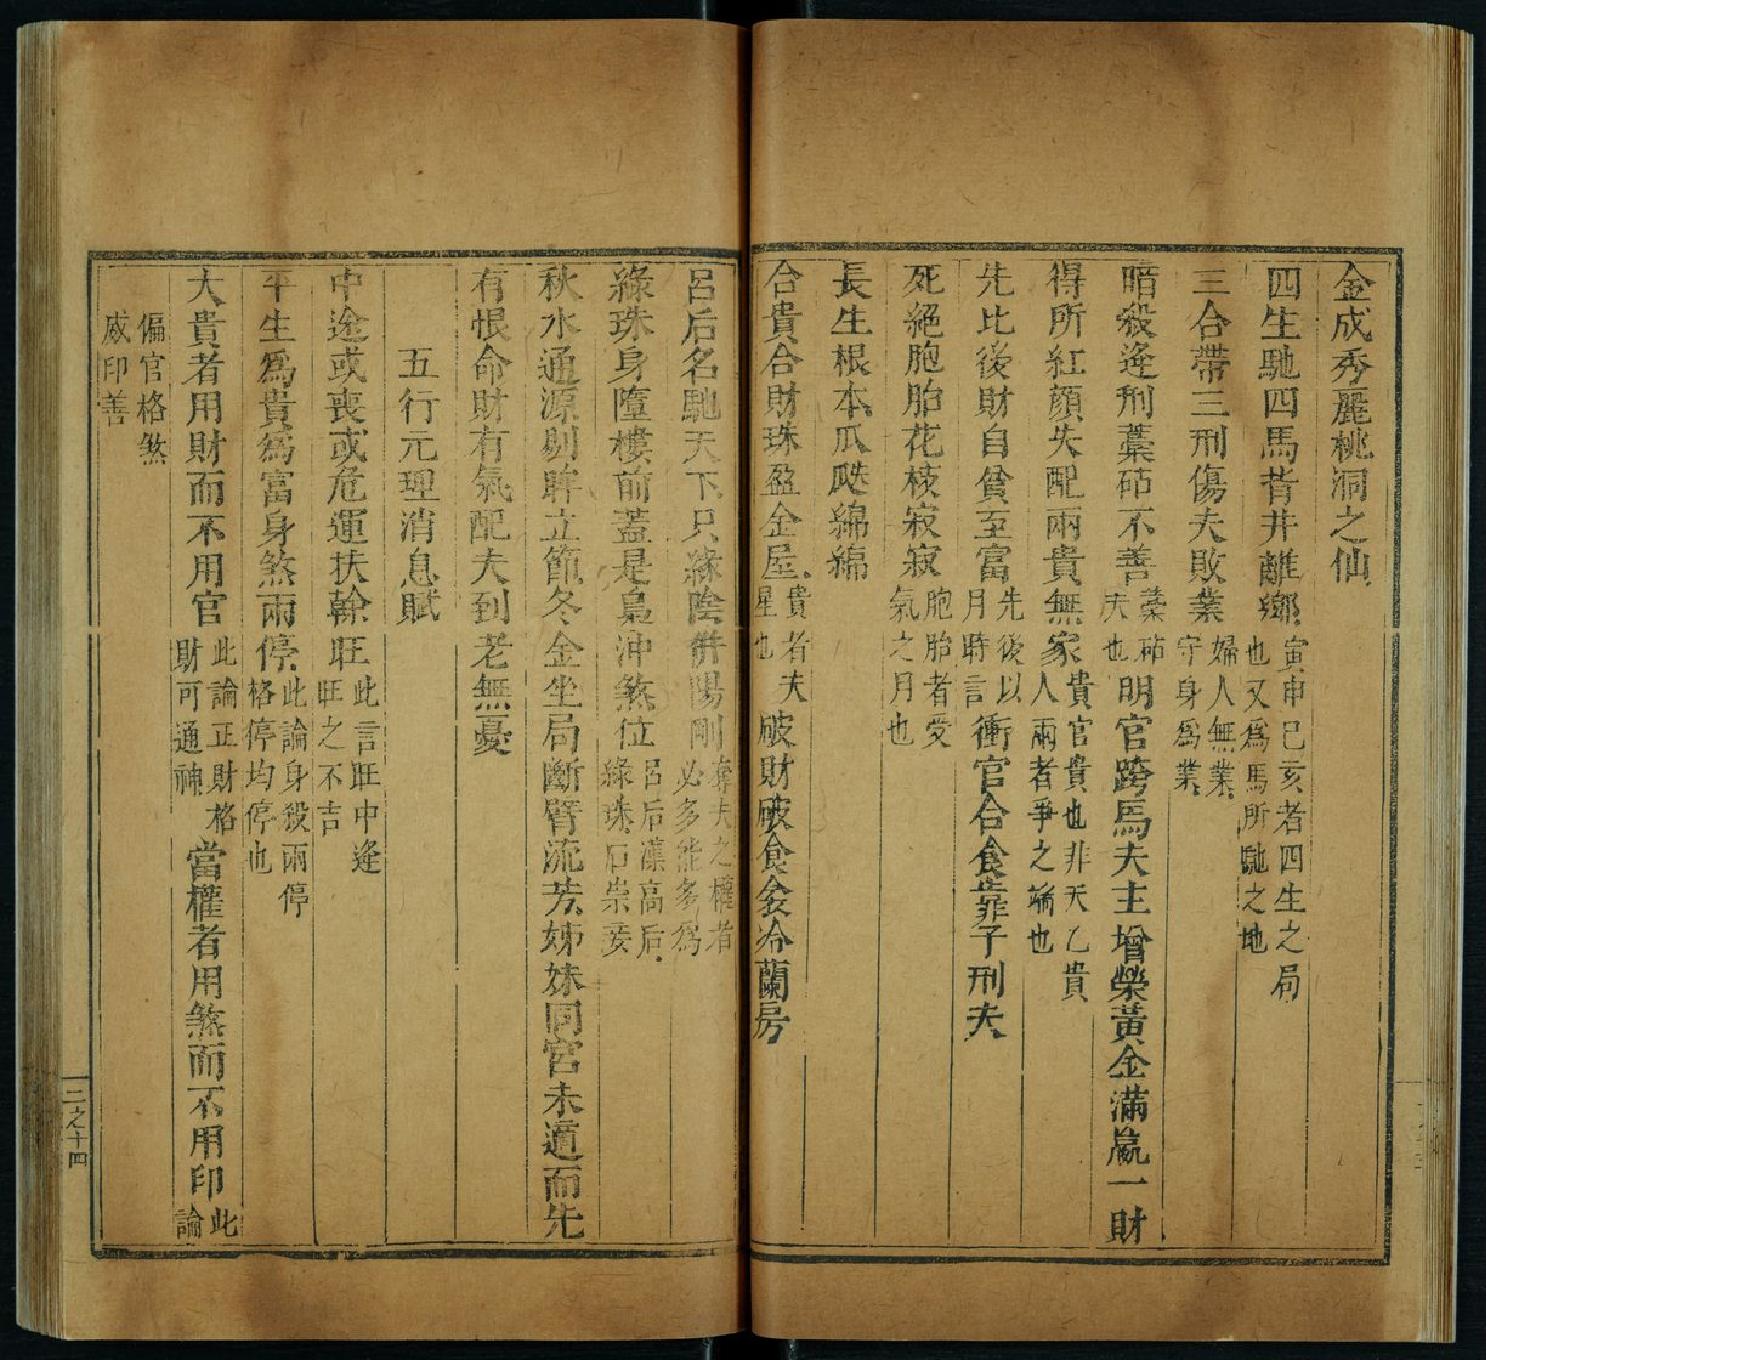 金成秀麗桃洞之仙
四生馳四馬背井離鄉寅申巳亥者四生之局也又爲馬所馳之地
三合帶三刑傷夫敗業婦人無業守身爲業
暗殺逄刑藁砧不善藁砧夫也明官跨馬夫主增榮黃金滿籯一財
得所紅顏失配兩貴無家貴官貴也非天乙貴人兩者爭之端也
先比後財自貧至富先後以月時言衝官合食靠子刑夫
死絕胞胎花枝寂寂胞胎者受氣之月也
長生根本瓜瓞綿綿
合貴合財珠盈金屋貴者夫星也破財破食衾冷蘭房
呂后名馳天下只緣陰併陽剛奪夫之權者必多能多爲
綠珠身墮樓前蓋是梟沖煞位呂后漢高后綠珠石崇妾
秋水通源剔眸立節冬金坐局斷臂流芳姊妹同宮未適而先
有恨命財有氣配夫到老無憂
五行元理消息賦
中途或喪或危運扶幹旺此言旺中逢旺之不吉
平生爲貴爲富身煞兩停此論身殺兩停格停均停也
大貴者用財而不用官此論正財格財可通神當權者用煞而不用印此論
偏官格煞威印善
三之十四